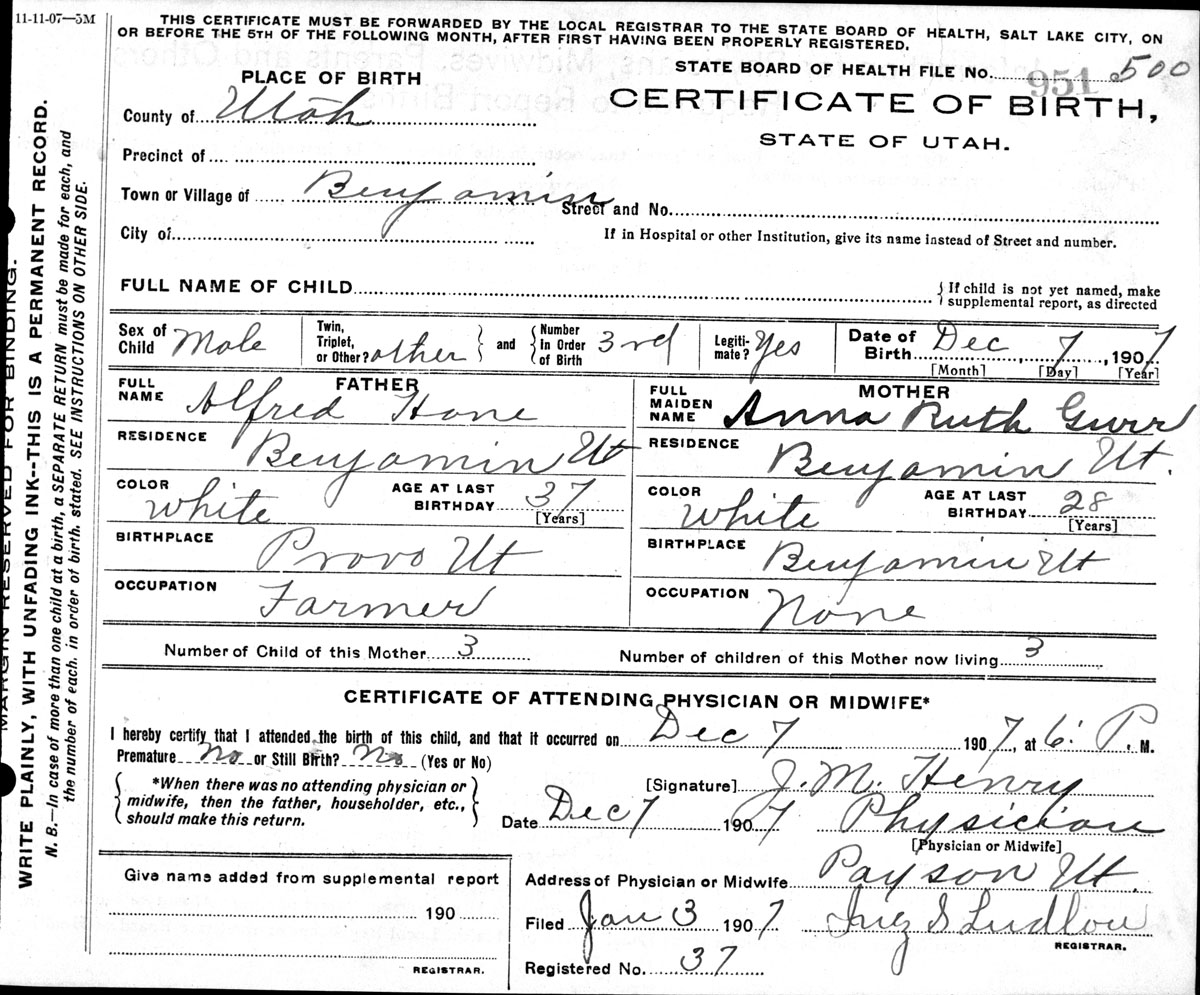 11-11-07—5M
THIS CERTIFICATE MUST BE FORWARDED BY THE LOCAL REGISTRAR TO THE STATE BOARD OF HEALTH, SALT LAKE CITY, ON
OR BEFORE THE 5TH OF THE FOLLOWING MONTH, AFTER FIRST HAVING BEEN PROPERLY REGISTERED.
PLACE OF BIRTH
STATE BOARD OF HEALTH FILE No. 951 500
CERTIFICATE OF BIRTH,
STATE OF UTAH.
County of Utah
Precinct of
Town or Village of Benjamin
Street and No.
City of
If in Hospital or other Institution, give its name instead of Street and number.
FULL NAME OF CHILD
{ If child is not yet named, make
supplemental report, as directed
Sex of Child Male
Twin, Triplet, or Other? other } and { Number In Order of Birth 3rd
Legiti-mate? Yes
Date of Birth Dec 7, 1907
[Month] [Day] [Year]
FATHER
FULL NAME Alfred Hone
RESIDENCE Benjamin Ut
COLOR White AGE AT LAST BIRTHDAY 37 [Years]
BIRTHPLACE Provo Ut
OCCUPATION Farmer
MOTHER
FULL MAIDEN NAME Anna Ruth Gurr
RESIDENCE Benjamin Ut.
COLOR White AGE AT LAST BIRTHDAY 28 [Years]
BIRTHPLACE Benjamin Ut
OCCUPATION None
Number of Child of this Mother 3
Number of children of this Mother now living 3
CERTIFICATE OF ATTENDING PHYSICIAN OR MIDWIFE*
I hereby certify that I attended the birth of this child, and that it occurred on Dec 7 1907, at 6: P. M.
Premature No or Still Birth? No (Yes or No)
{ *When there was no attending physician or
midwife, then the father, householder, etc.,
should make this return. }
[Signature] J. M. Henry
Date Dec 7 1907 Physician
[Physician or Midwife]
Address of Physician or Midwife Payson Ut.
Filed Jan 3 1907 Inez S Ludlow
REGISTRAR.
Registered No. 37
Give name added from supplemental report
190
REGISTRAR.
MARGIN RESERVED FOR BINDING.
WRITE PLAINLY, WITH UNFADING INK--THIS IS A PERMANENT RECORD.
N. B.—In case of more than one child at a birth, a SEPARATE RETURN must be made for each, and
the number of each, in order of birth, stated. SEE INSTRUCTIONS ON OTHER SIDE.